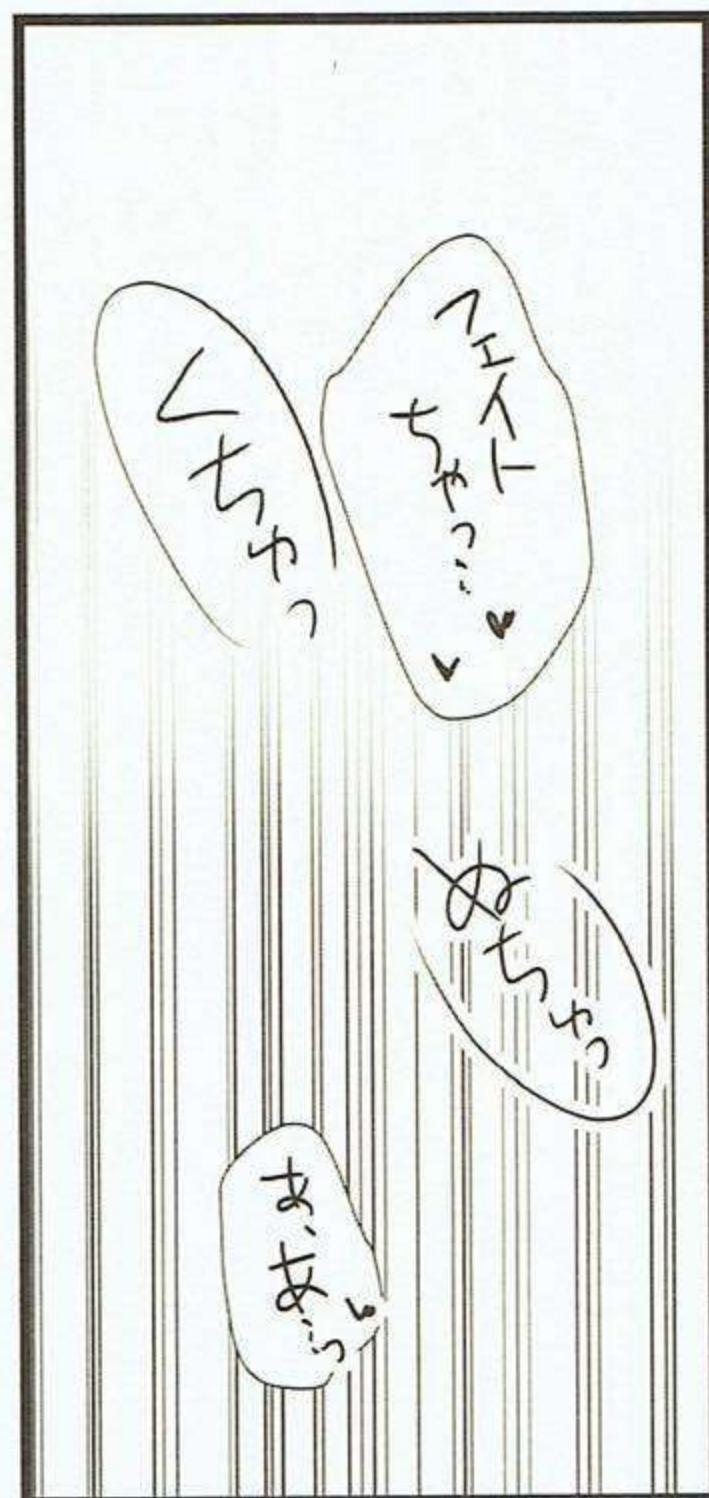 フェイト
ちゃっ…♥♥
くちゃっ
ぬちゃっ
あ、あ…っ♥